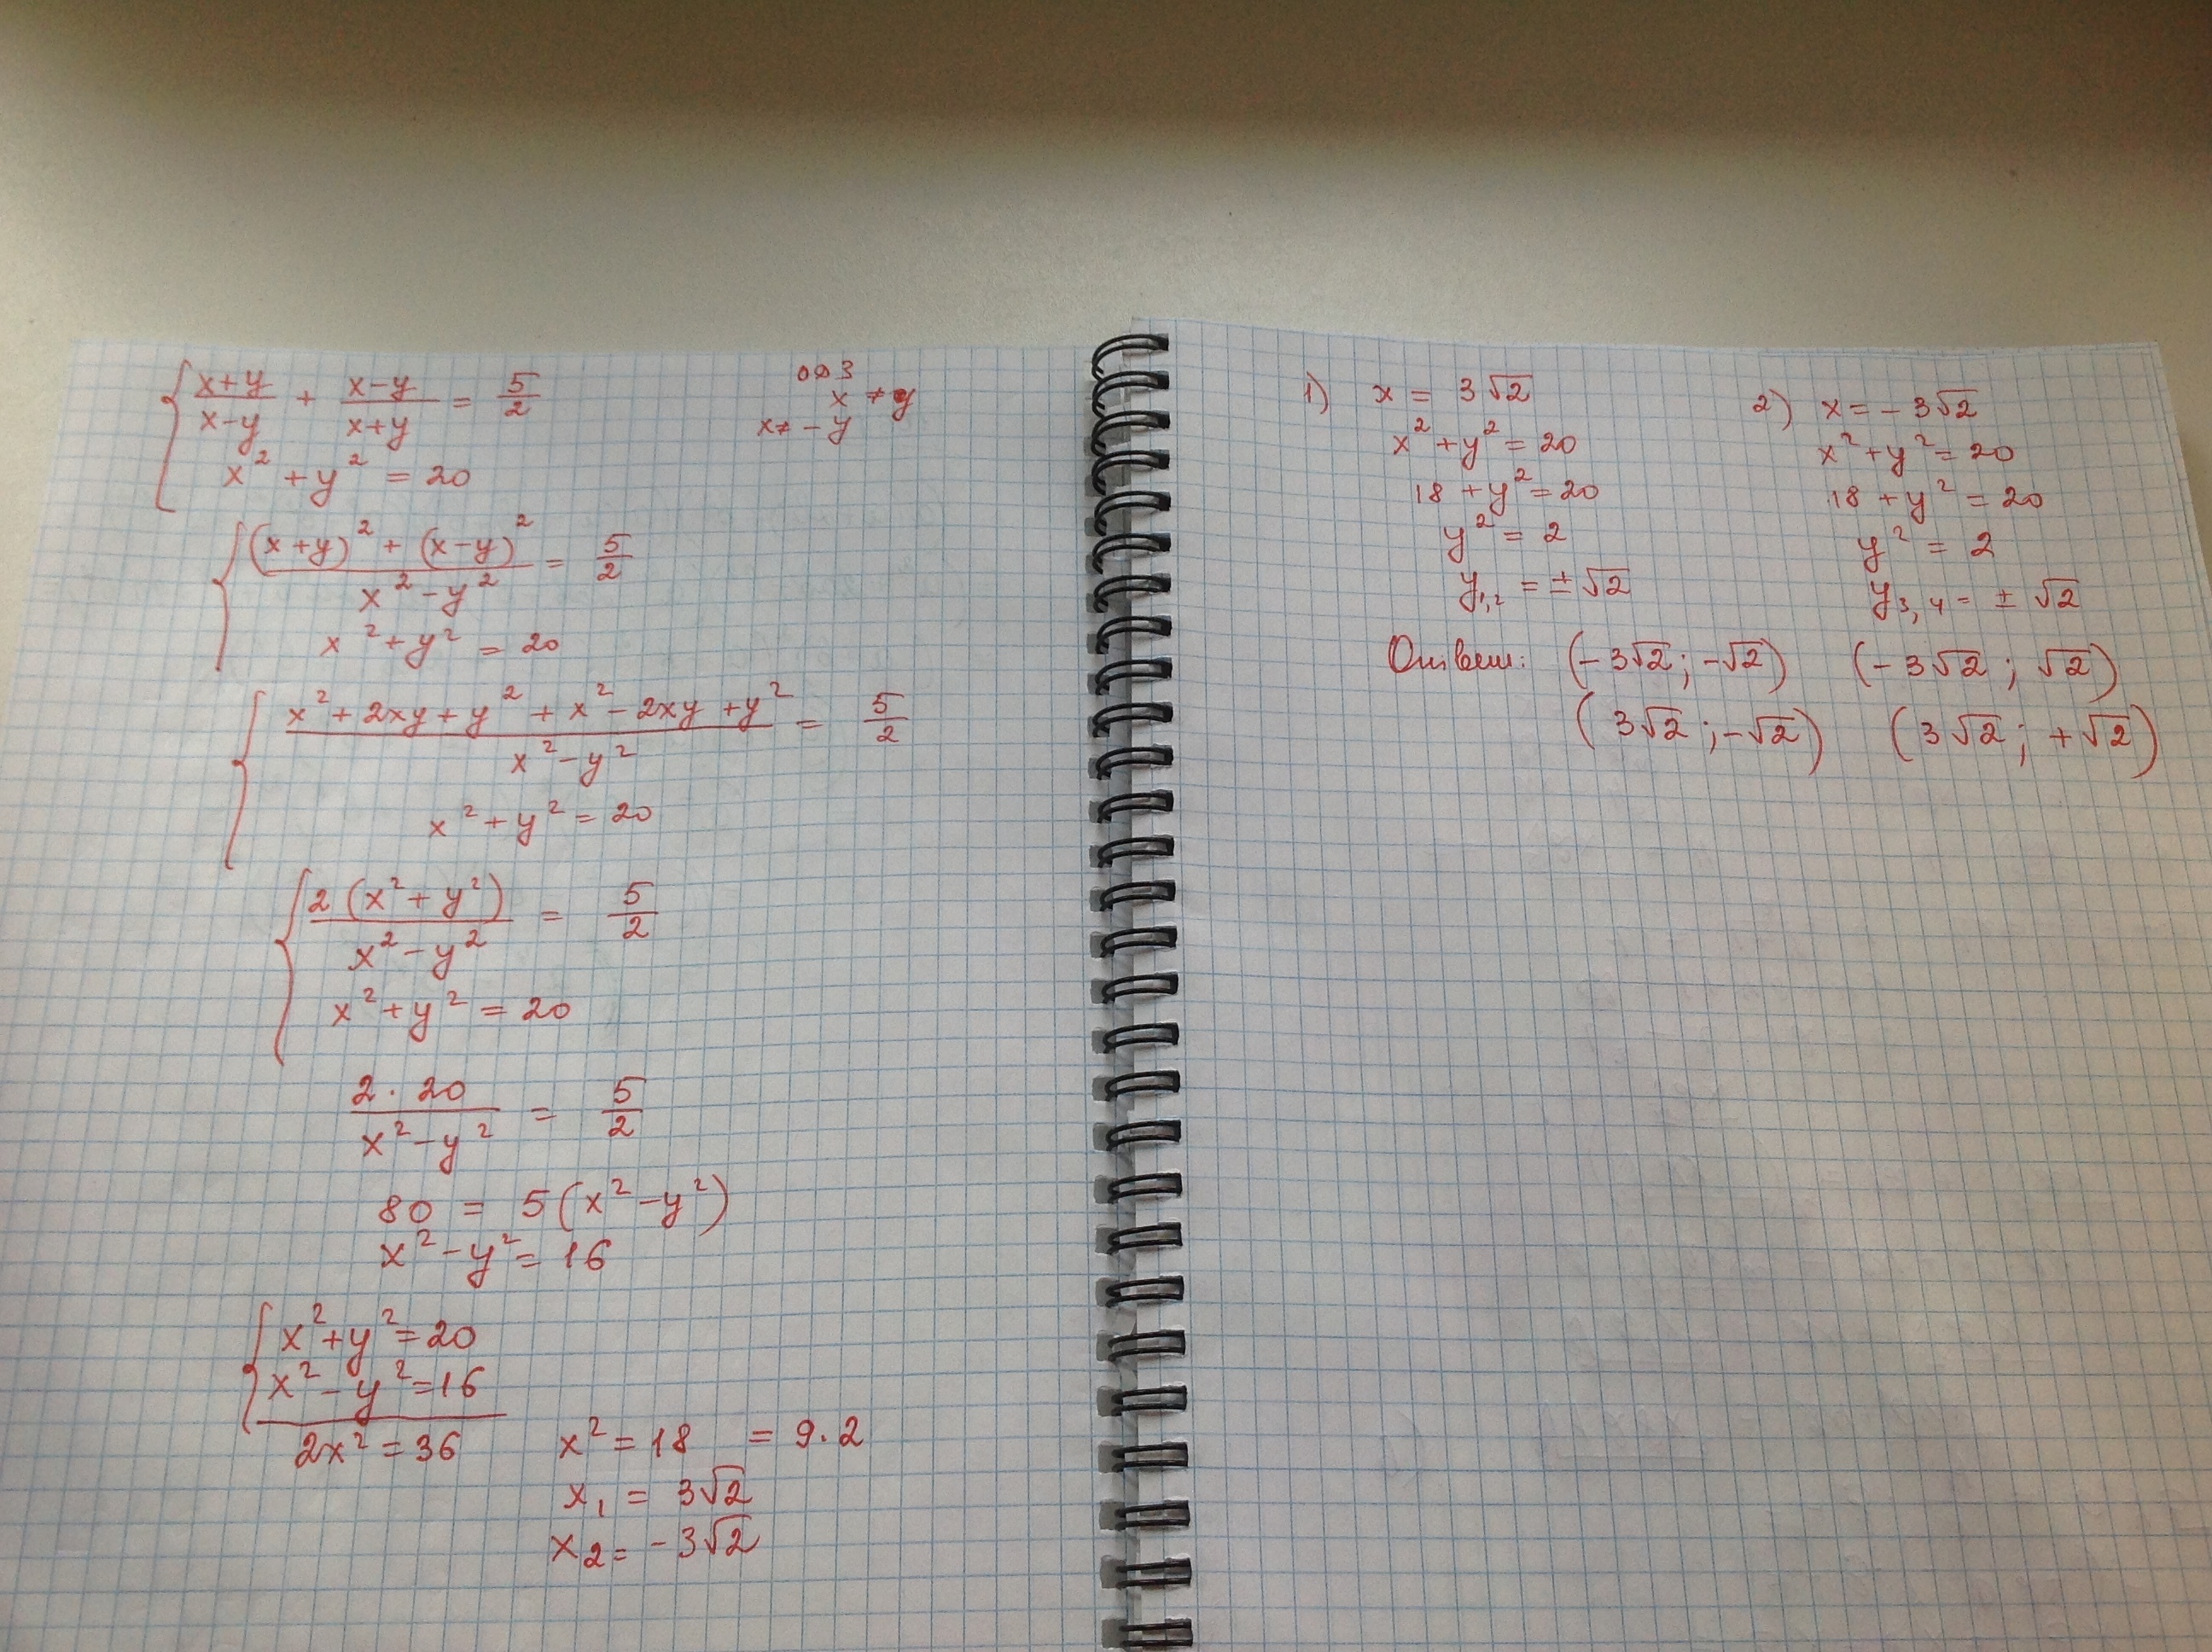 (x+y)/(x-y) + (x-y)/(x+y) = 5/2
ОДЗ
x ≠ y
x ≠ -y
x² + y² = 20
((x+y)² + (x-y)²)/(x² - y²) = 5/2
x² + y² = 20
(x² + 2xy + y² + x² - 2xy + y²)/(x² - y²) = 5/2
x² + y² = 20
2(x² + y²)/(x² - y²) = 5/2
x² + y² = 20
(2 · 20)/(x² - y²) = 5/2
80 = 5(x² - y²)
x² - y² = 16
x² + y² = 20
x² - y² = 16
2x² = 36
x² = 18 = 9·2
x₁ = 3√2
x₂ = -3√2
1) x = 3√2
x² + y² = 20
18 + y² = 20
y² = 2
y₁,₂ = ±√2
2) x = -3√2
x² + y² = 20
18 + y² = 20
y² = 2
y₃,₄ = ±√2
Ответ: (-3√2; -√2) (-3√2; √2)
(3√2; -√2) (3√2; +√2)